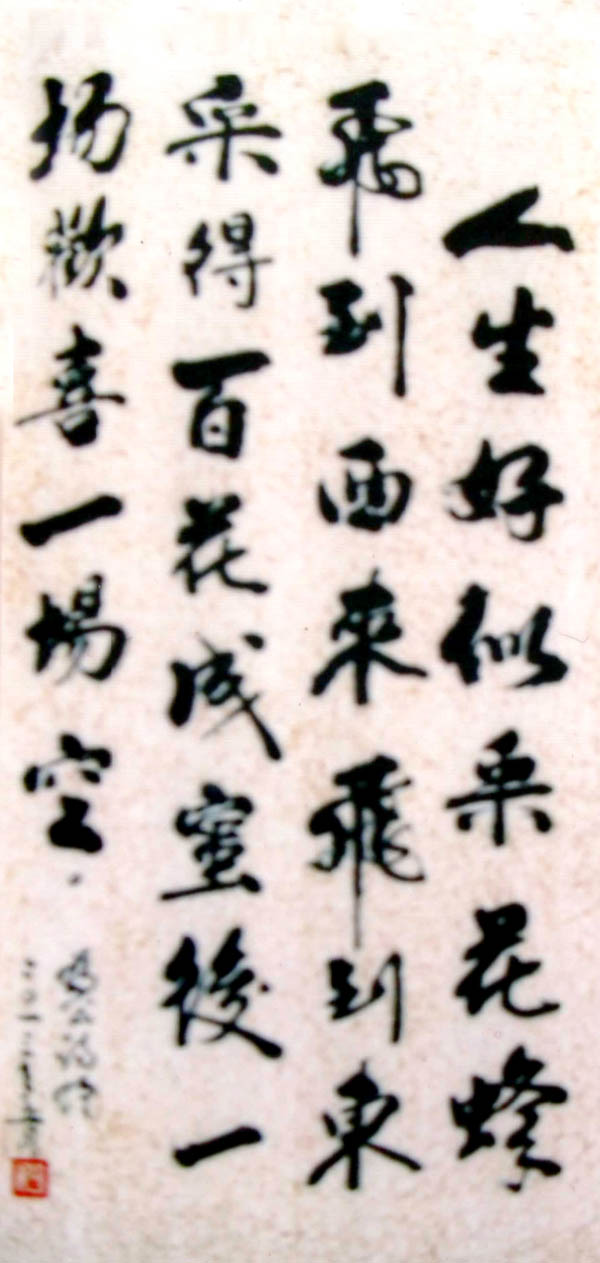 人生好似采花蜂
飛到西來飛到東
采得百花成蜜後一
場歡喜一場空